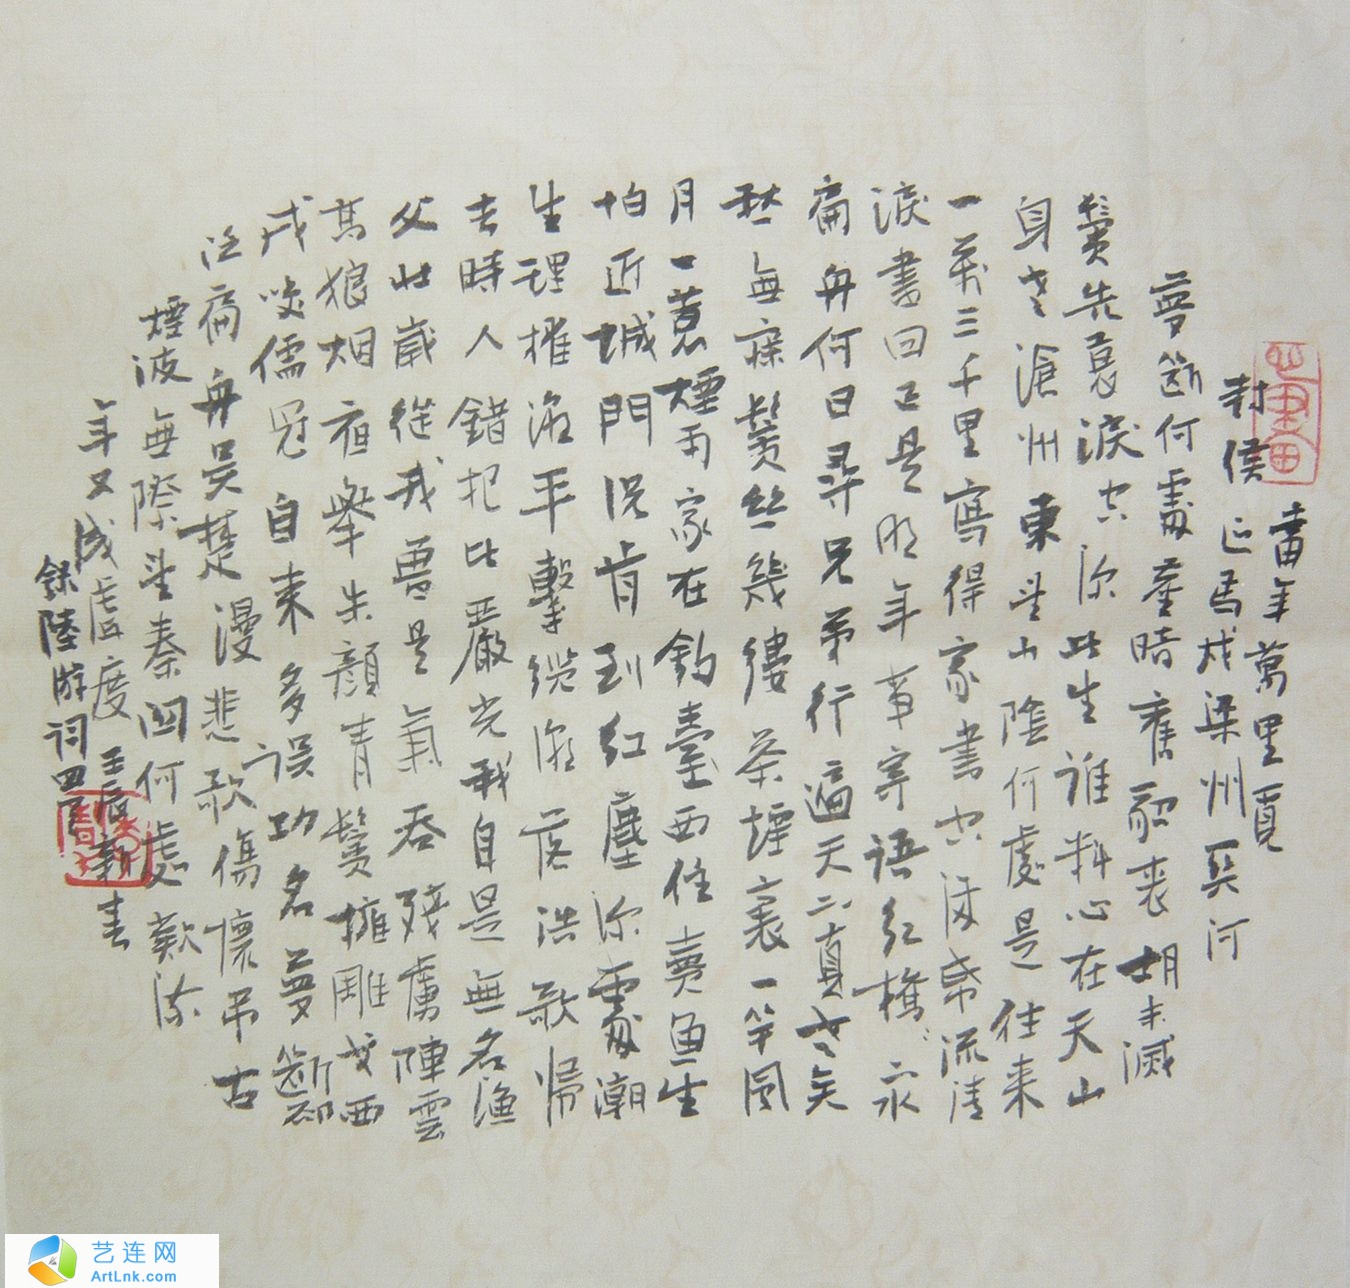 當年萬里覓
封侯匹馬戍梁州関河
夢斷何處塵暗舊貂裘胡未滅
鬢先衰淚空流此生誰料心在天山
身老滄州東望山陰何處是往來
一萬三千里寫得家書空滿紙流清
淚書回已是明年事寄語紅橋〻水
扁舟何日尋兄弟行遍天涯真老矣
愁無寐鬢絲幾縷茶煙裏一竿風
月一蓑煙雨家在釣臺西住賣魚生
怕近城門況肯到紅塵深處潮
生理櫂潮平繫纜潮落浩歌歸
去時人錯把比嚴光我自是無名漁
父壯歲從戎曾是氣吞殘虜陣雲
高狼烟夜舉朱顏青鬢擁雕戈西
戍笑儒冠自來多误功名夢斷却
泛扁舟吳楚漫悲歌傷懷吊古
煙波無際望秦関何處歎流
年又成虛度 壬辰新春
錄陸游词四首
艺连网
ArtLnk.com